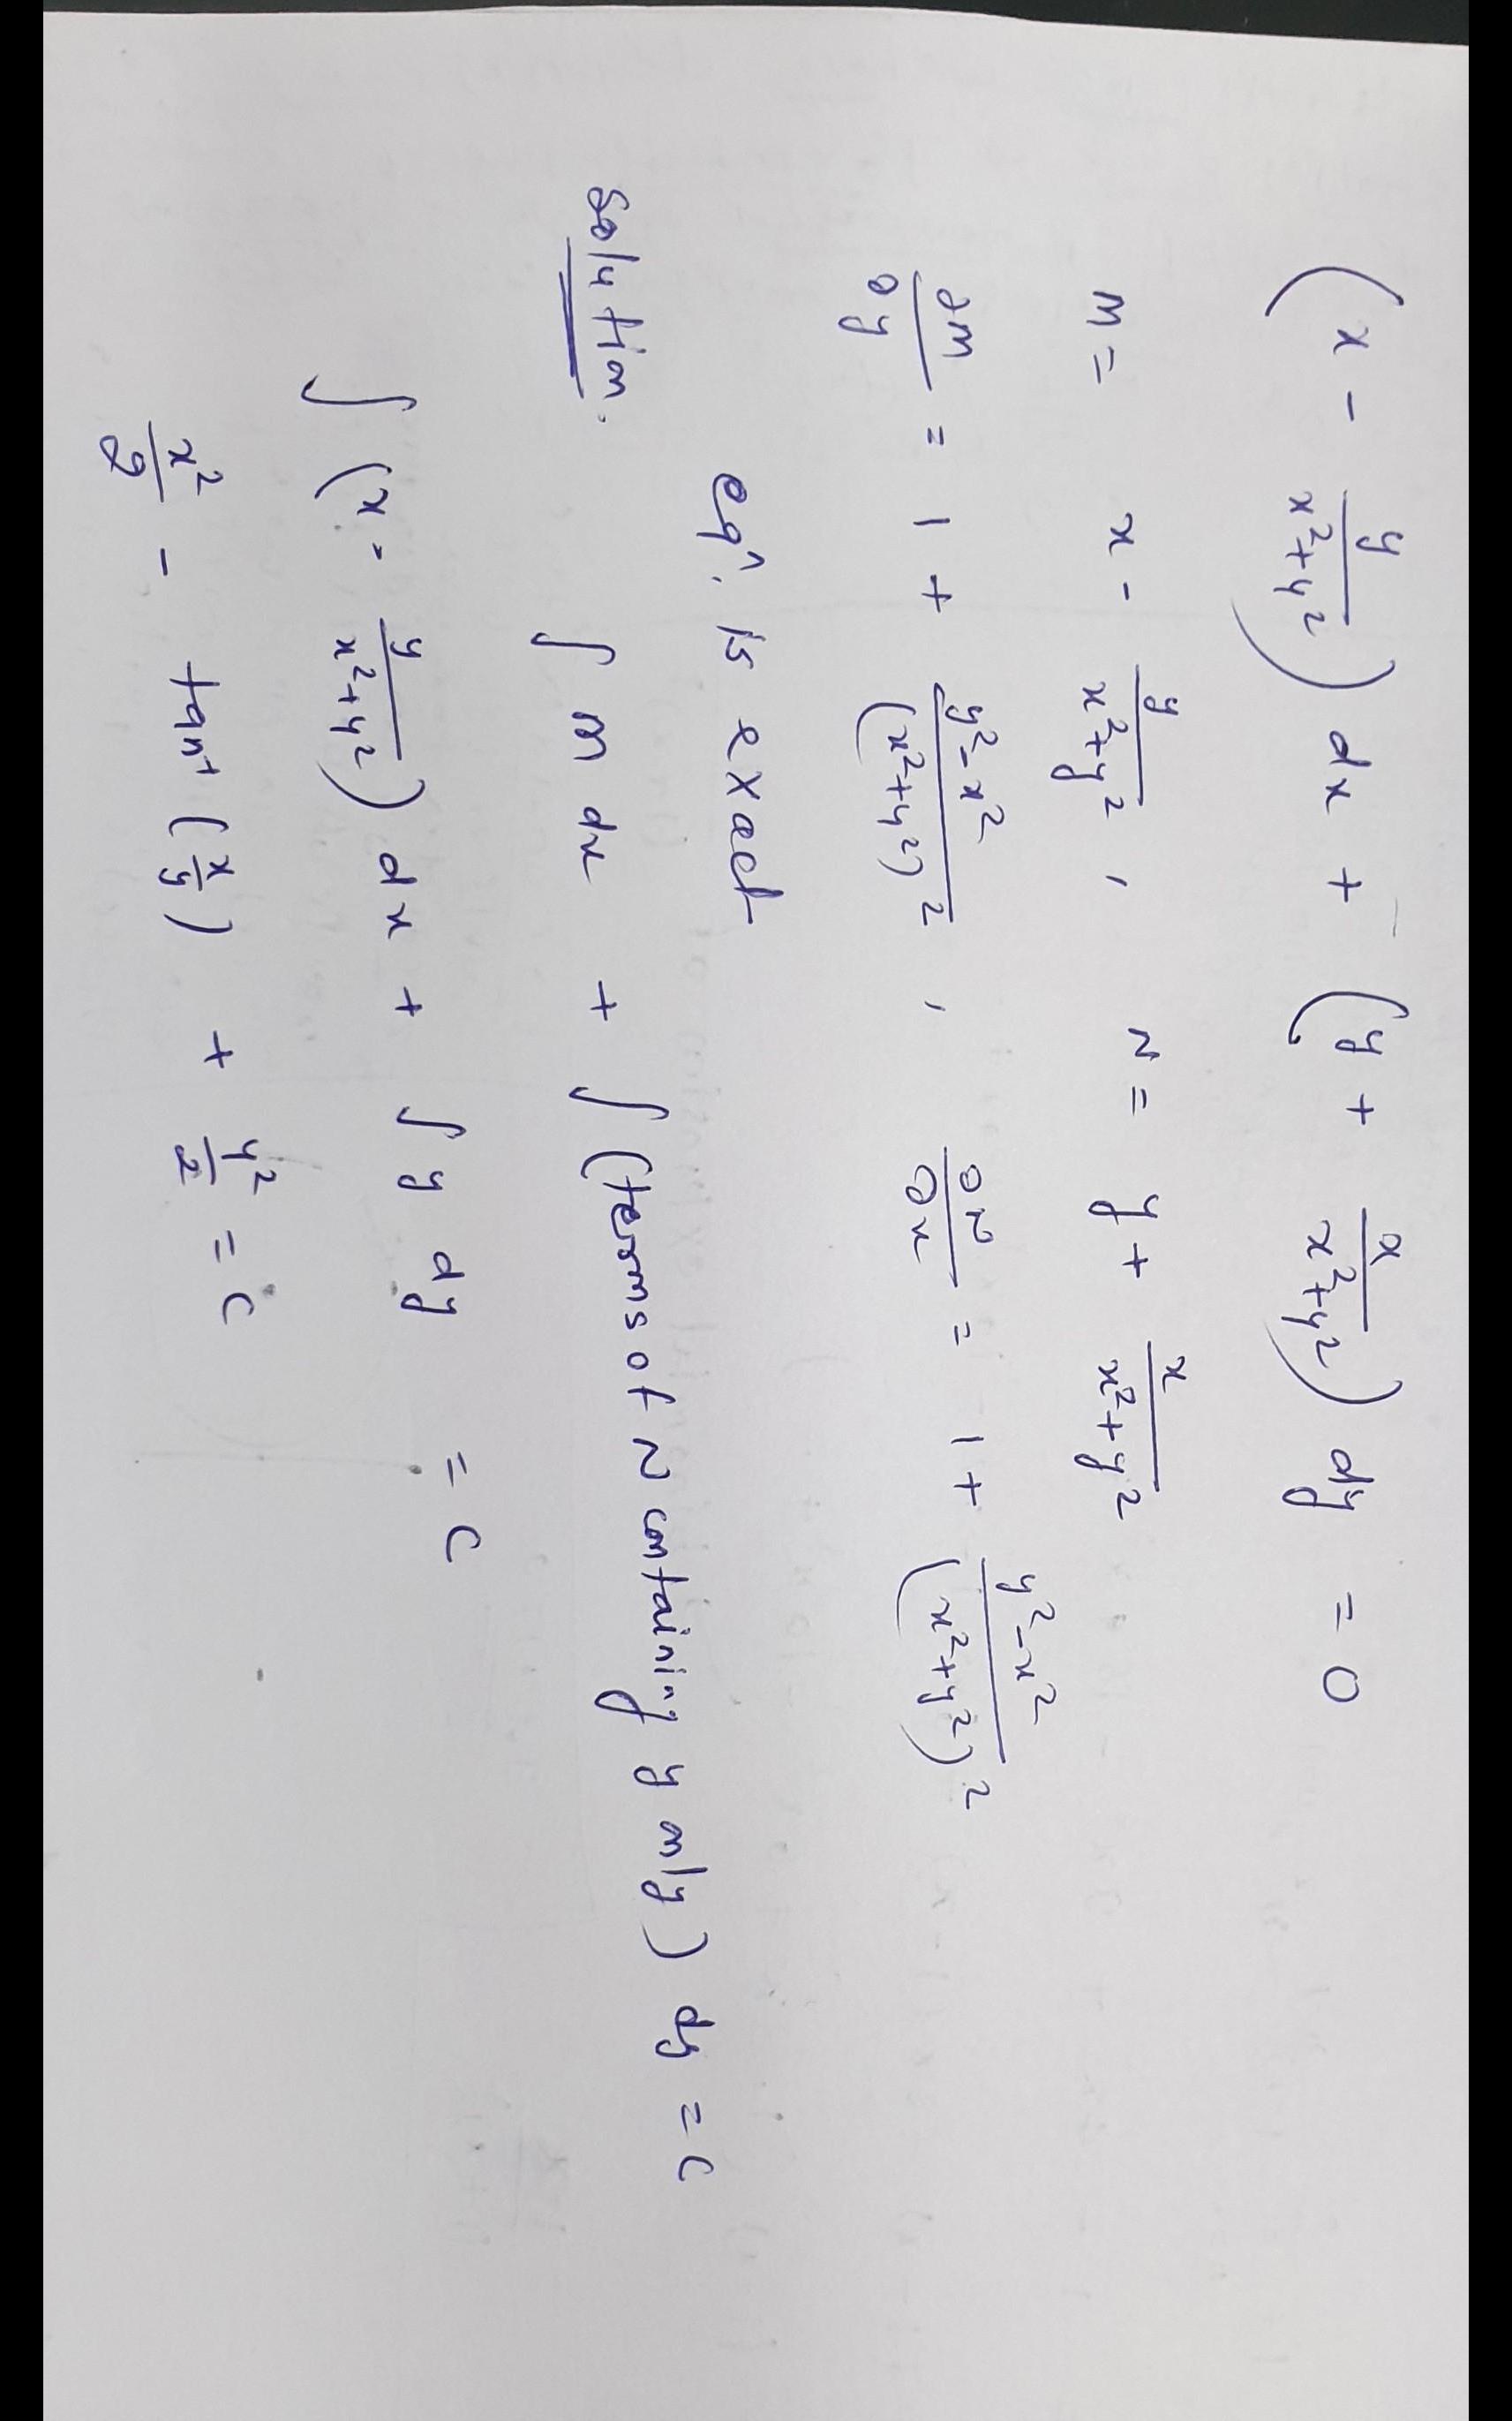 (x - y/(x²+y²)) dx + (y + x/(x²+y²)) dy = 0
M = x - y/(x²+y²) , N = y + x/(x²+y²)
∂M/∂y = 1 + (y²-x²)/(x²+y²)² , ∂N/∂x = 1 + (y²-x²)/(x²+y²)²
eqⁿ. is exact
Solution. ∫ m dx + ∫ (terms of N containing y only) dy = c
∫ (x - y/(x²+y²)) dx + ∫ y dy = c
x²/2 - tan⁻¹ (x/y) + y²/2 = c